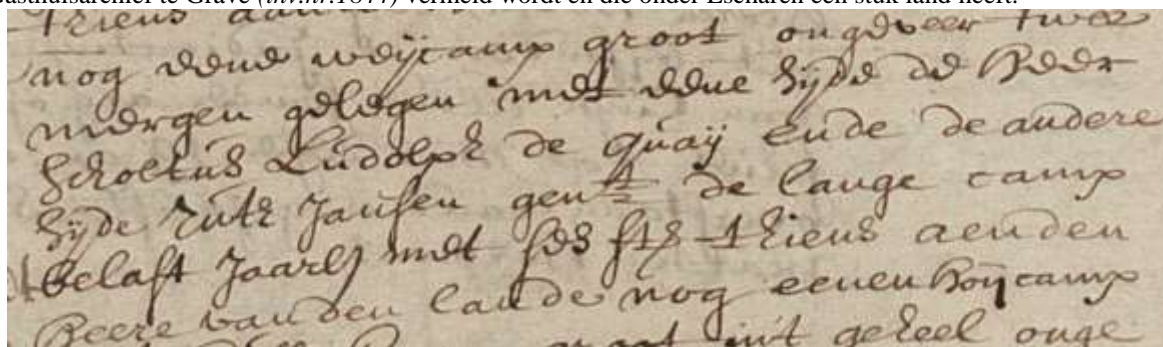 Gasthuisarchief te Grave (inv.nr.1877) vermeld wordt en die onder Escharen een stuk land heeft.
nog eene weijcamp groot ongeveer twee
mergen gelegen met eene sijde de Heer
Scholtus Ludolph de Quaij ende de andere
sijde Rutt Jansen gent de lange camp
belast Jaarlx met ses sts thiens aen den
Heere van den lande nog eenen hoijcamp
groot int geheel onge